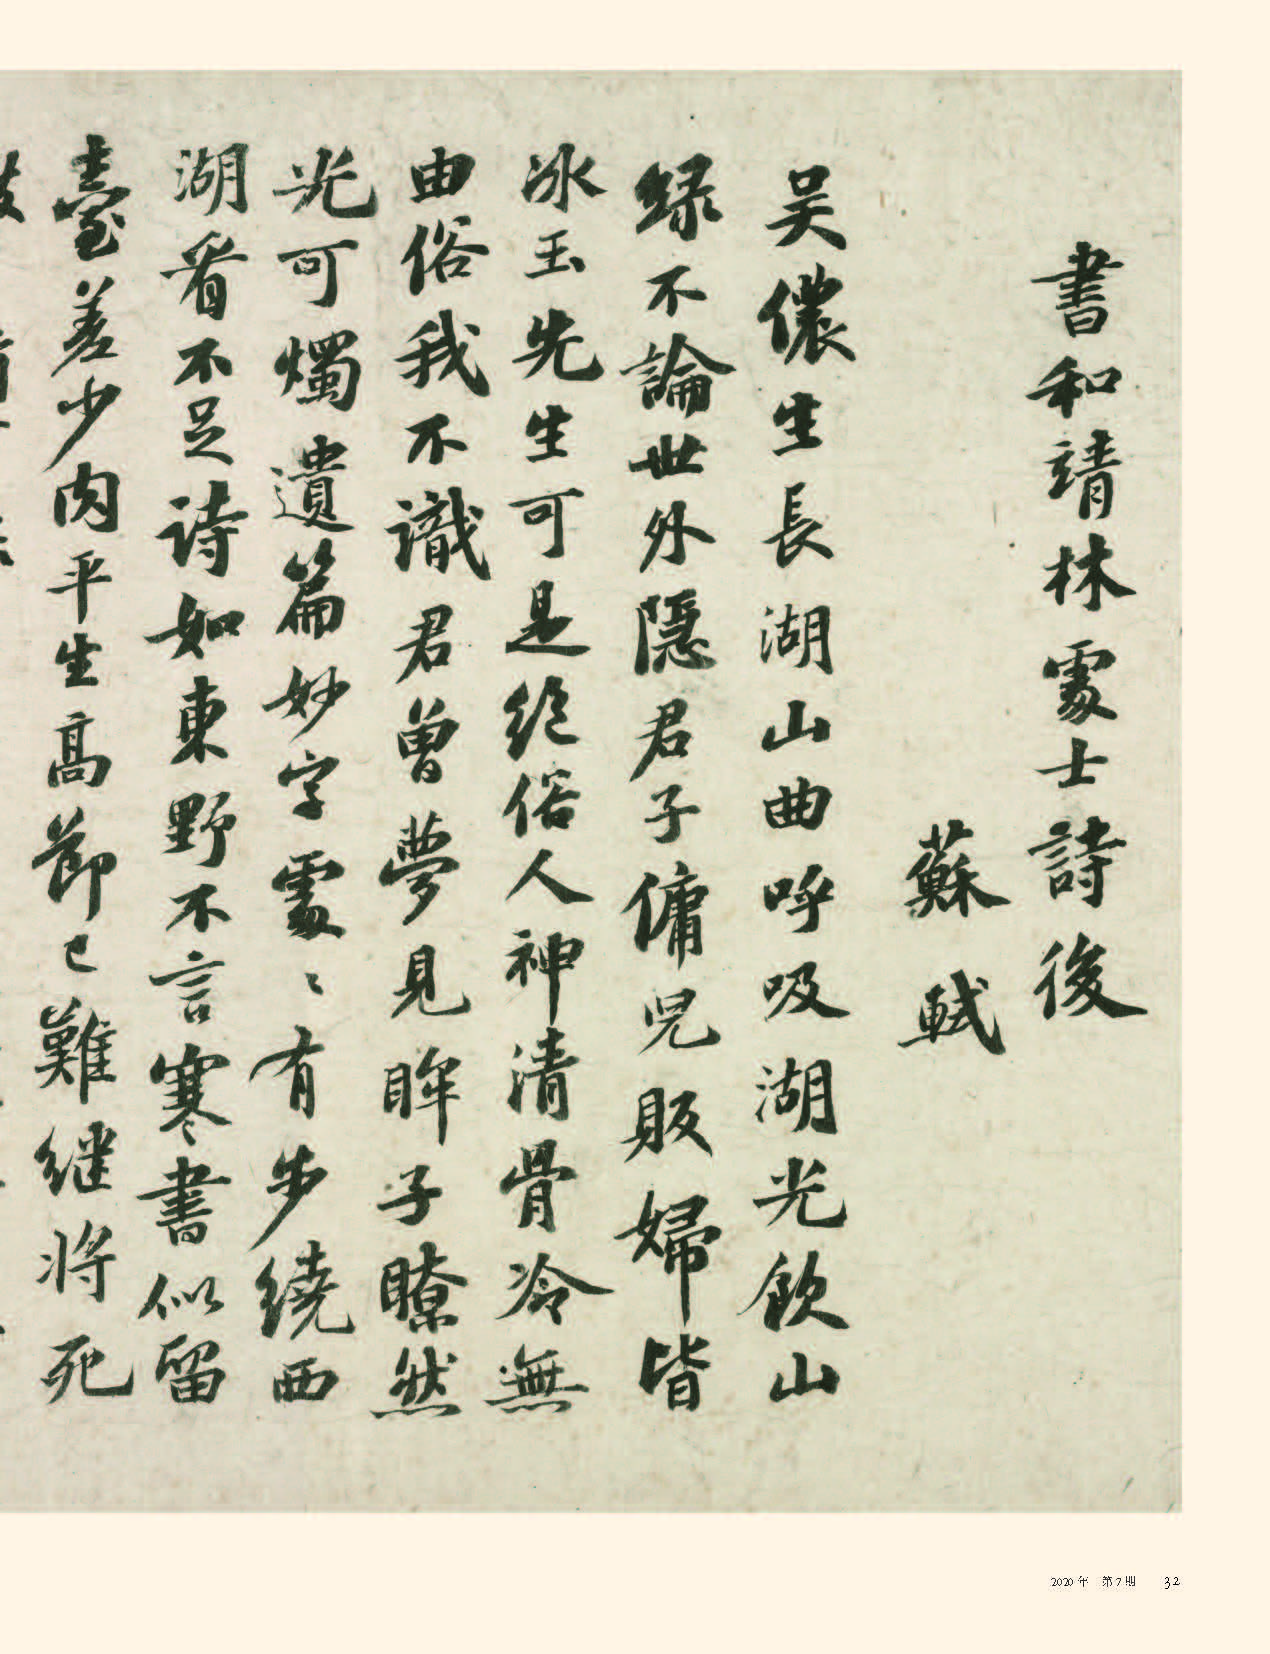 書和靖林處士詩後
蘇軾
吴儂生長湖山曲呼吸湖光飲山
緑不論世外隱君子傭兒販婦皆
冰玉先生可是絕俗人神清骨冷無
由俗我不識君曾夢見眸子瞭然
光可燭遺篇妙字處〻有步繞西
湖看不足詩如東野不言寒書似留
臺差少肉平生高節已難继將死
2020年 第7期 32